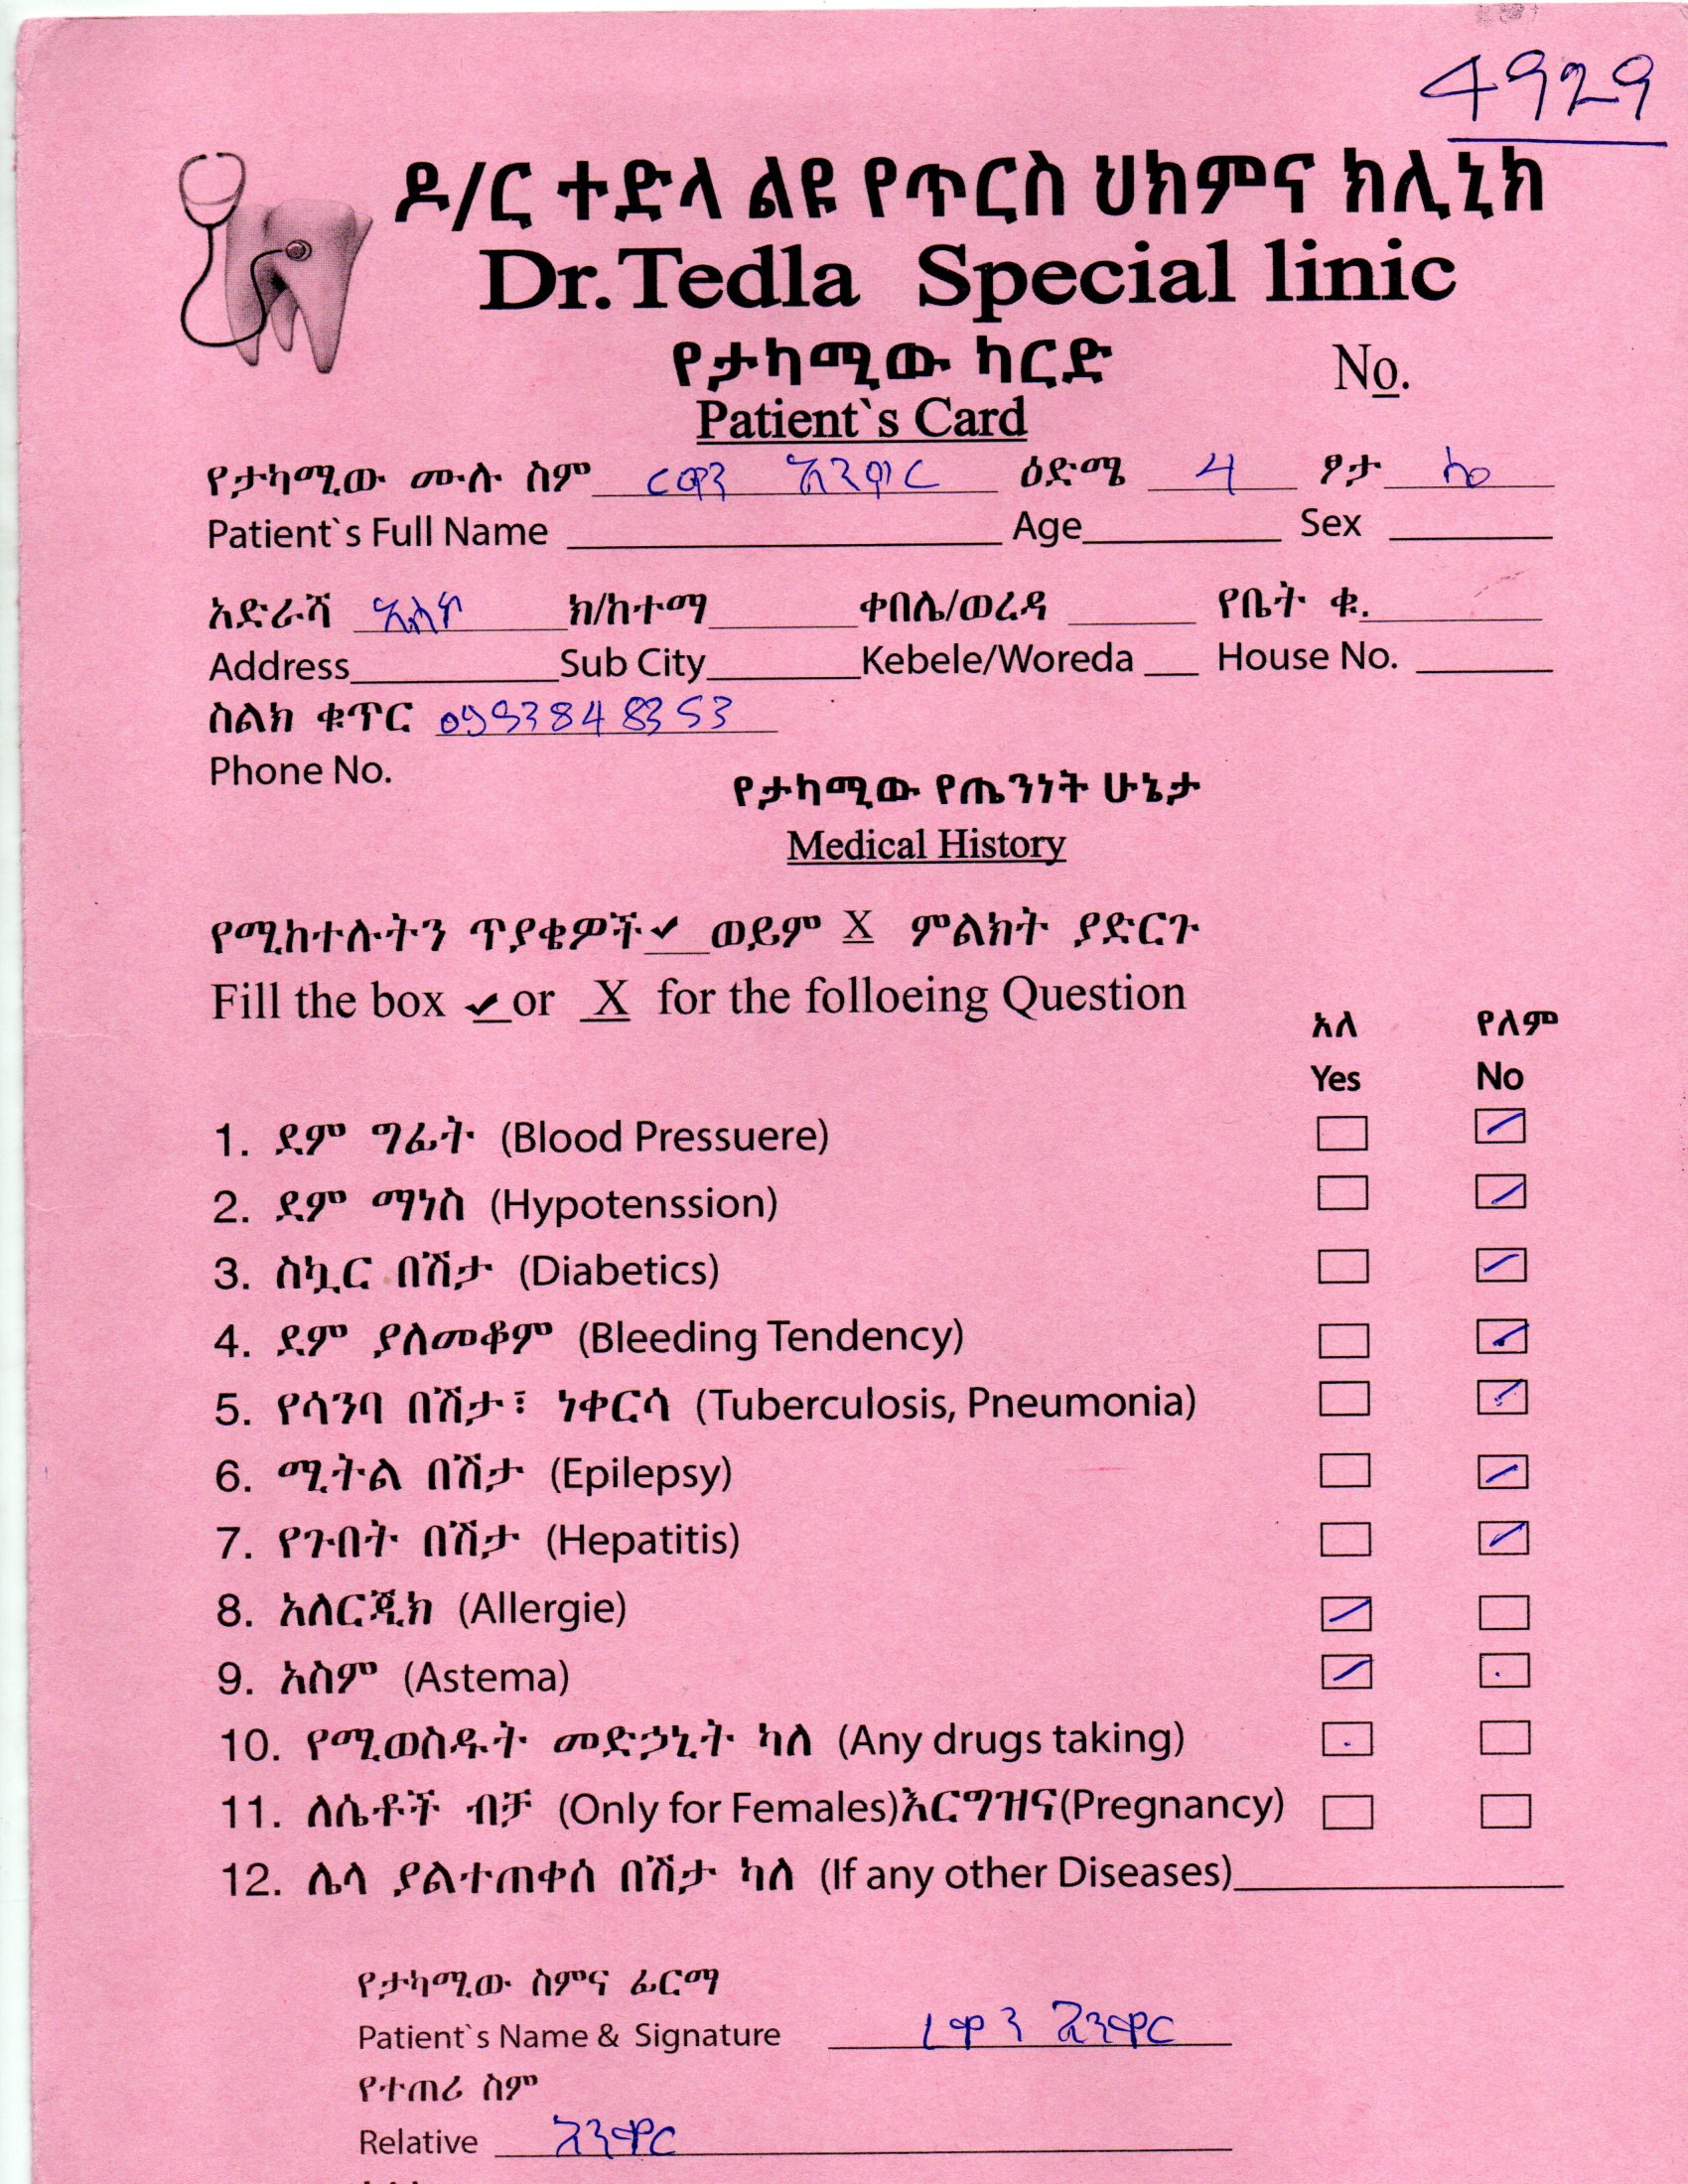 4929
ዶ/ር ተድላ ልዩ የጥርስ ህክምና ክሊኒክ
Dr.Tedla Special linic
የታካሚው ካርድ No.
Patient`s Card
የታካሚው ሙሉ ስም ረዋን አንዋር ዕድሜ 4 ፆታ
Patient`s Full Name Age Sex
አድራሻ ክ/ከተማ ቀበሌ/ወረዳ የቤት ቁ.
Address Sub City Kebele/Woreda House No.
ስልክ ቁጥር
Phone No.
የታካሚው የጤንነት ሁኔታ
Medical History
የሚከተሉትን ጥያቄዎች ✓ ወይም X ምልክት ያድርጉ
Fill the box ✓ or X for the folloeing Question
አለ የለም
Yes No
1. ደም ግፊት (Blood Pressuere)
2. ደም ማነስ (Hypotenssion)
3. ስኳር በሽታ (Diabetics)
4. ደም ያለመቆም (Bleeding Tendency)
5. የሳንባ በሽታ፣ ነቀርሳ (Tuberculosis, Pneumonia)
6. ሚትል በሽታ (Epilepsy)
7. የጉበት በሽታ (Hepatitis)
8. አለርጂክ (Allergie)
9. አስም (Astema)
10. የሚወስዱት መድኃኒት ካለ (Any drugs taking)
11. ለሴቶች ብቻ (Only for Females)እርግዝና(Pregnancy)
12. ሌላ ያልተጠቀሰ በሽታ ካለ (If any other Diseases)
የታካሚው ስምና ፊርማ
Patient`s Name & Signature ረዋን አንዋር
የተጠሪ ስም
Relative አንዋር